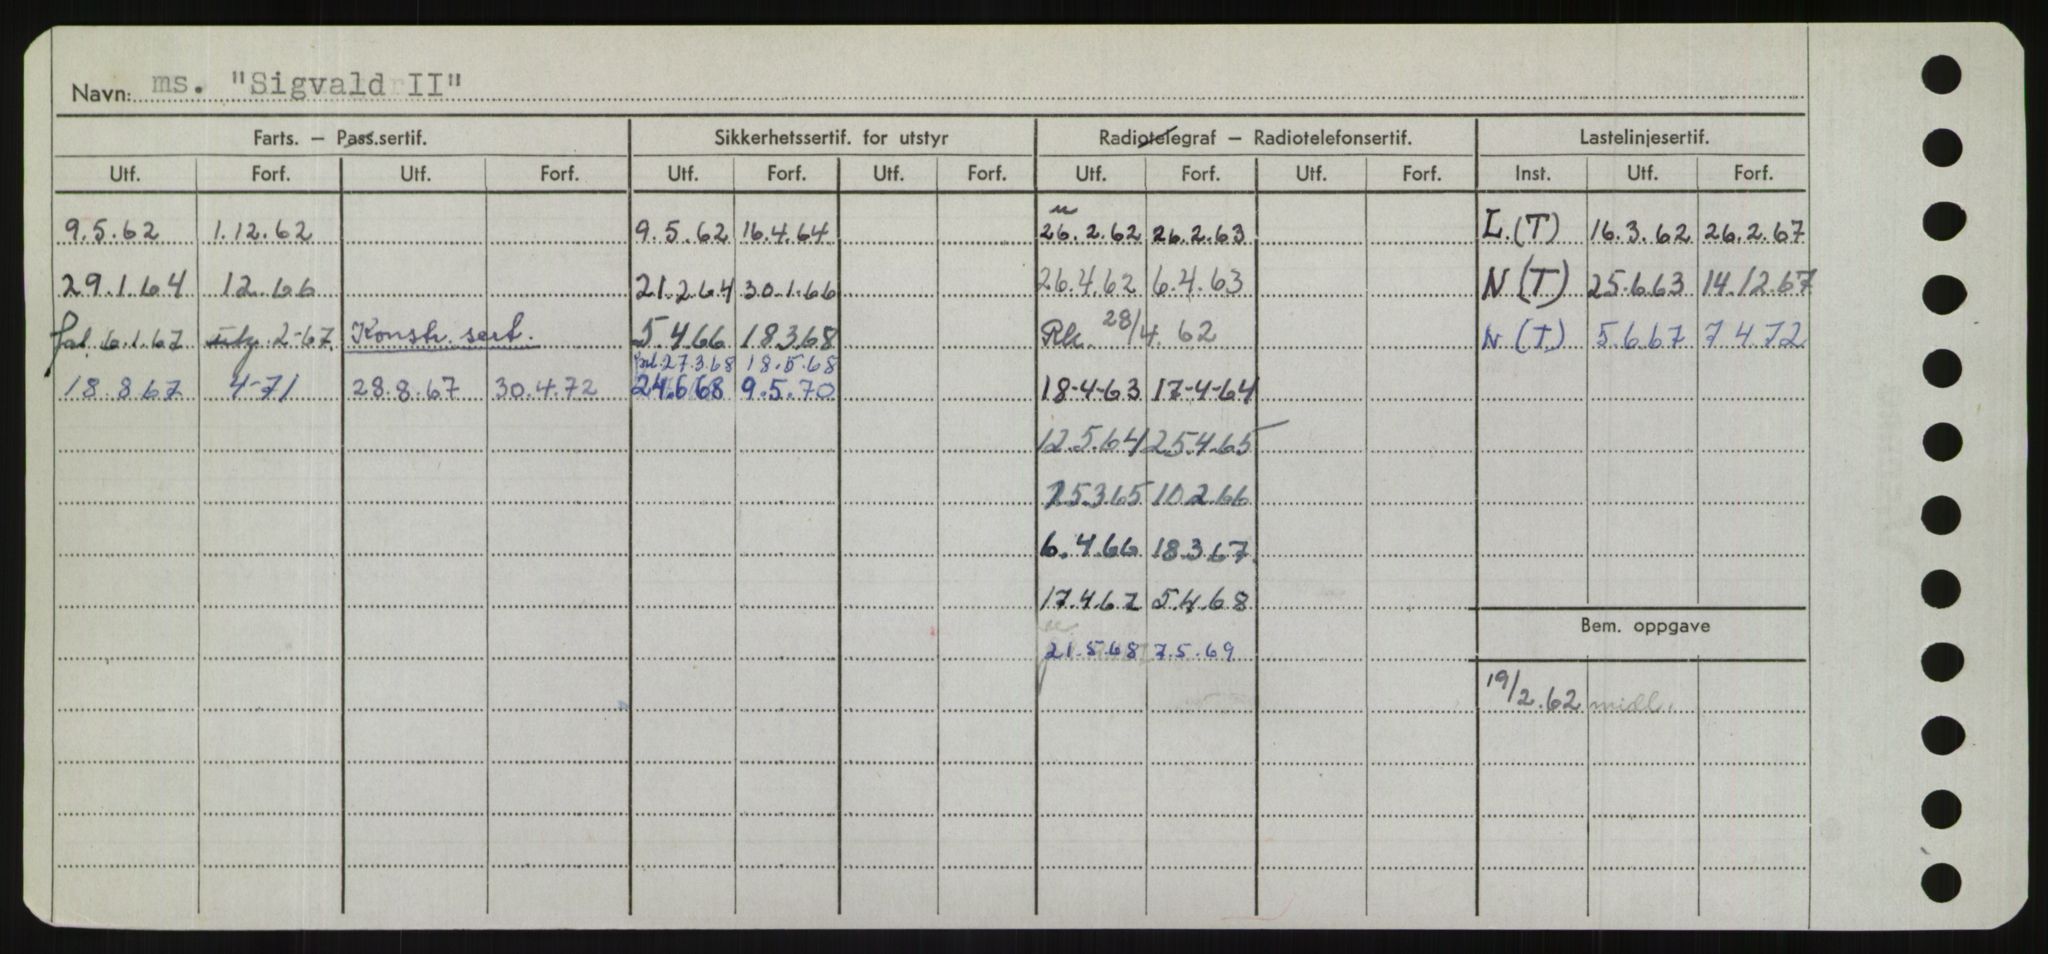 Navn: ms. "Sigvald II"
Farts. — Pass.sertif. Sikkerhetssertif. for utstyr Radiotelegraf — Radiotelefonsertif. Lastelinjesertif.
Utf. Forf. Utf. Forf. Utf. Forf. Utf. Forf. Utf. Forf. Utf. Forf. Inst. Utf. Forf.
9.5.62 1.12.62 9.5.62 16.4.64 26.2.62 26.2.63 L.(T) 16.3.62 26.2.67
29.1.64 12.66 21.2.64 30.1.66 26.4.62 6.4.63 N (T) 25.6.63 14.12.67
6.1.67 2-67 Konstr. sert. 5.4.66 18.3.68 28/4. 62 N (T) 5.6.67 7 4.72
27.3.68 18.5.68
18.8.67 4-71 28.8.67 30.4.72 24.6.68 9.5.70 18-4-63 17-4-64
12.5.64 25.4.65
25.3.65 10.2.66
6.4.66 18.3.67
17.4.67 5.4.68
Bem. oppgave
21.5.68 7.5.69
19/2.62 midl.